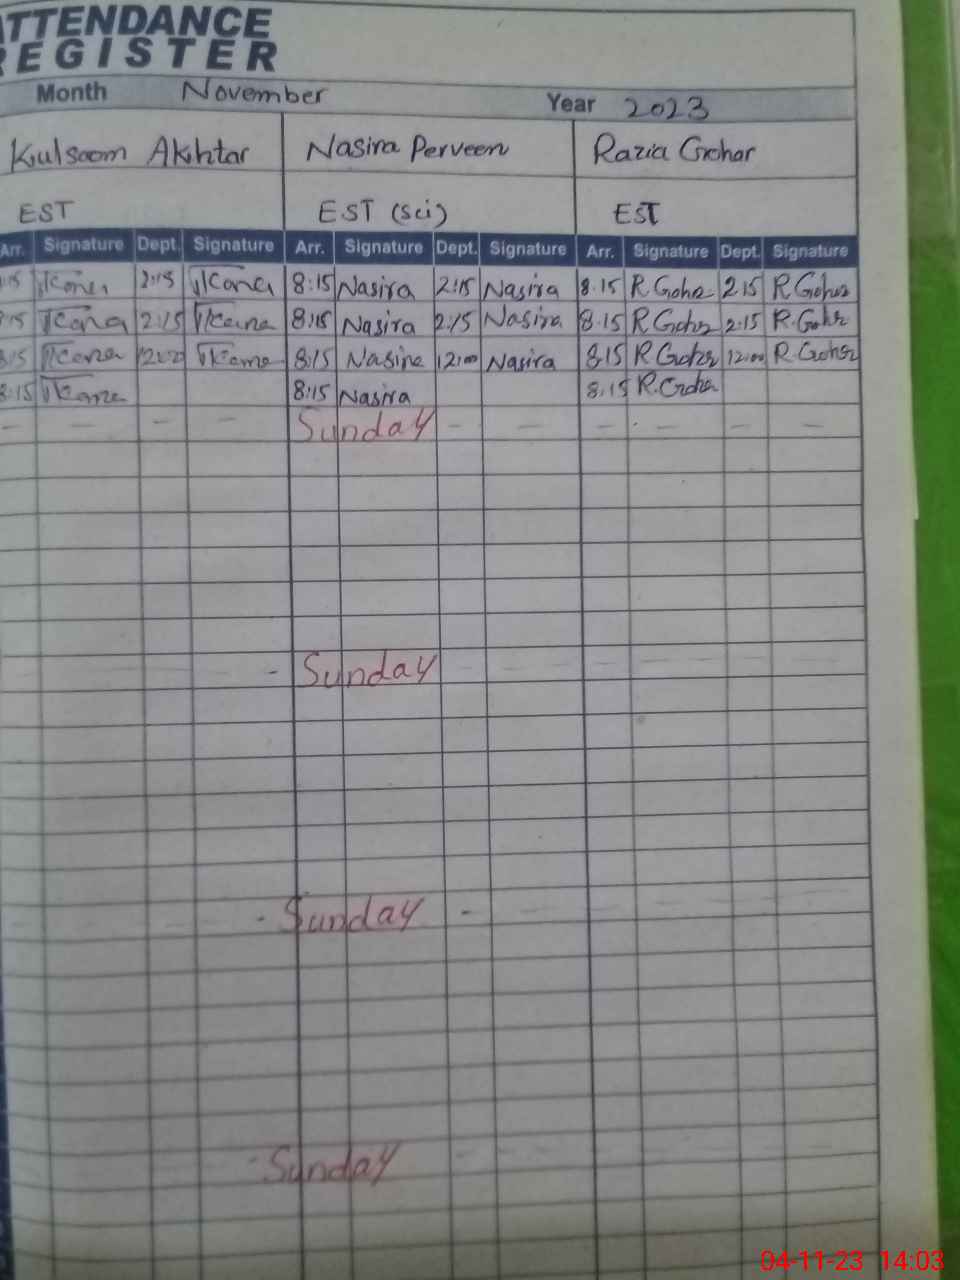 ATTENDANCE
REGISTER
Month November Year 2023
Kulsoom Akhtar Nasira Perveen Razia Gohar
EST EST (Sci) EST
Arr. Signature Dept. Signature Arr. Signature Dept. Signature Arr. Signature Dept. Signature
2:15 8:15 Nasira 2:15 Nasira 8:15 R Gohar 2:15 R Gohar
2:15 8:15 Nasira 2:15 Nasira 8:15 R Gohar 2:15 R. Gohr
8:15 Nasira 12:00 Nasira 8:15 R Gohar 12:00 R. Gohar
8:15 8:15 Nasira 8:15 R. Gohar
- - - - Sunday - - - - - -
- Sunday
- Sunday -
- Sunday
04-11-23 14:03